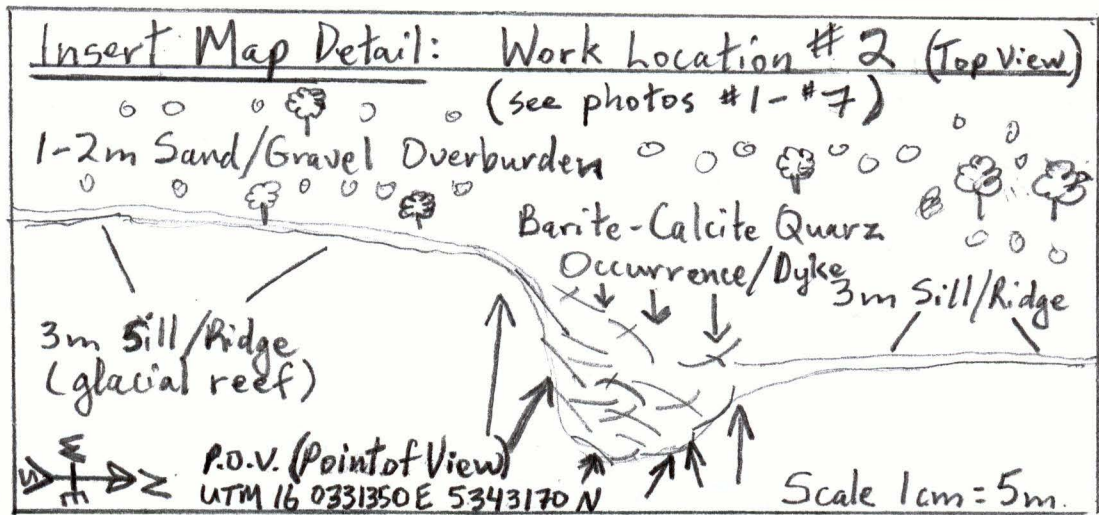 Insert Map Detail: Work Location # 2 (Top View)
(see photos #1-#7)
1-2m Sand/Gravel Overburden
Barite-Calcite Quarz
Occurrence/Dyke
3m Sill/Ridge
3m Sill/Ridge
(glacial reef)
P.O.V. (Point of View)
UTM 16 0331350E 5343170 N
S N
E
Scale 1cm = 5m.